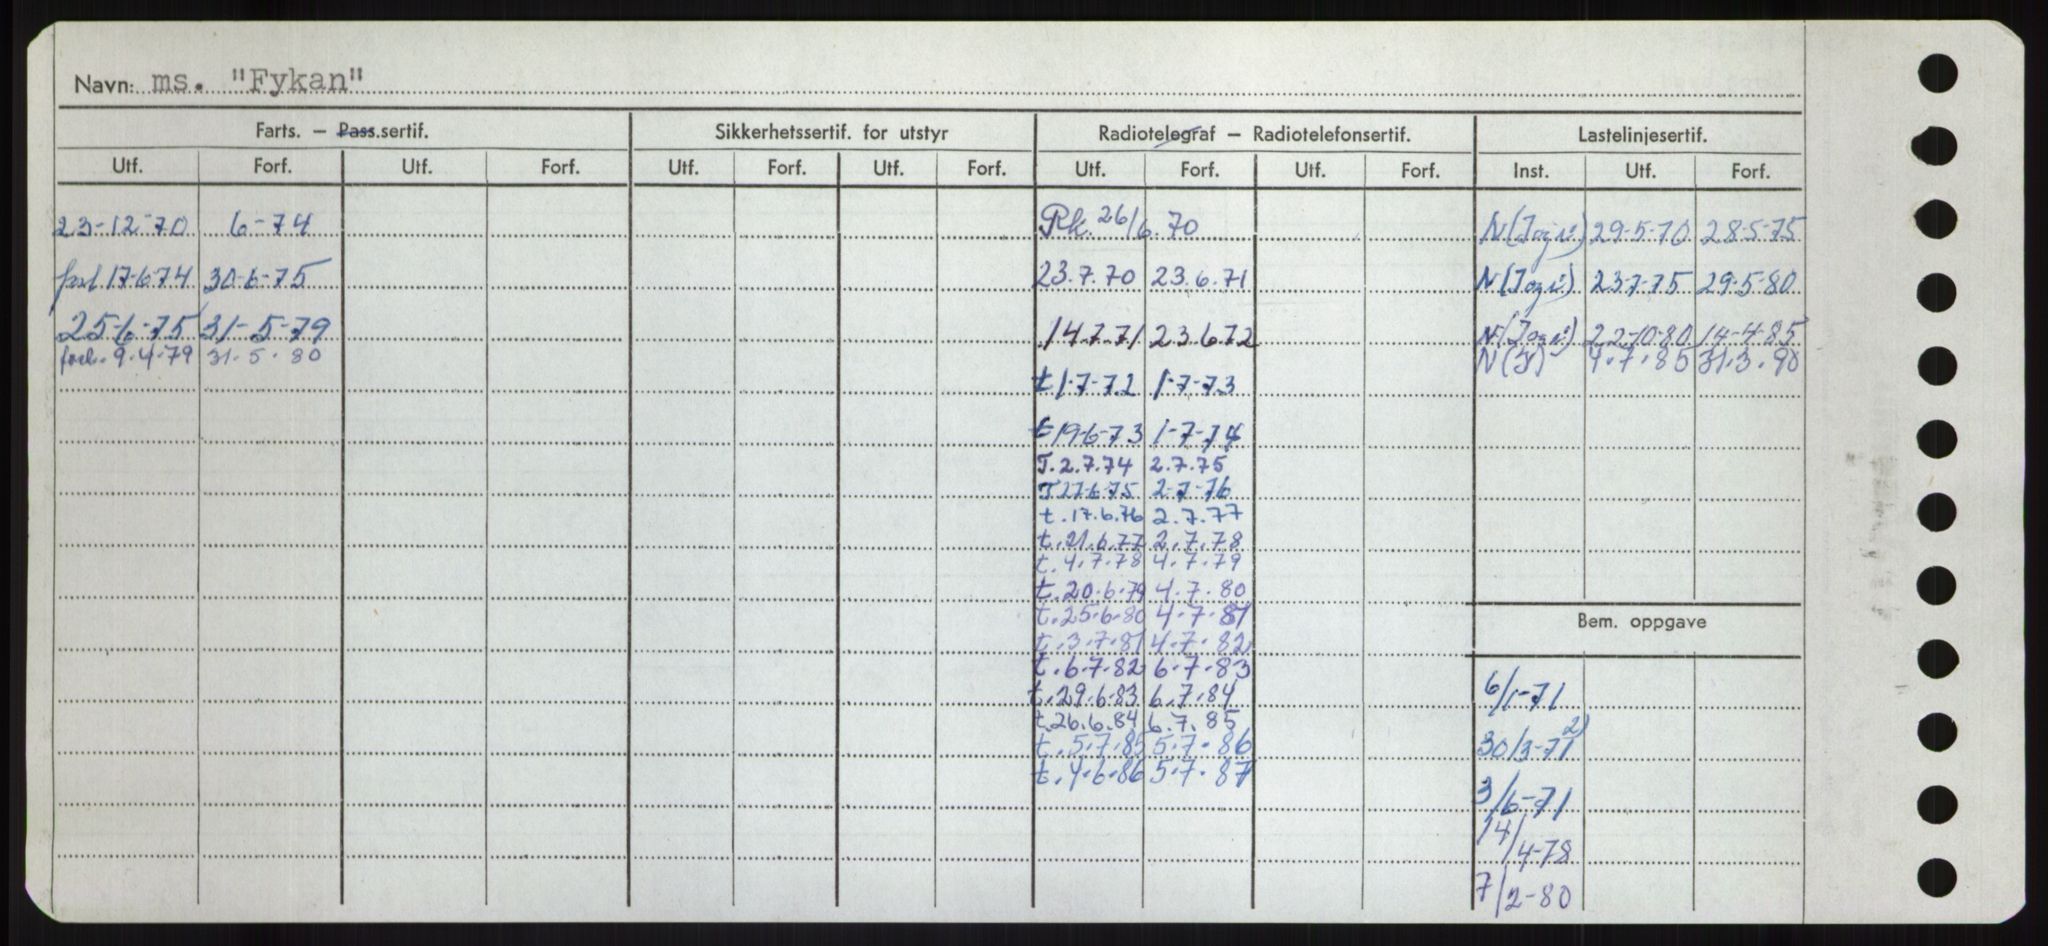 Navn: ms. "Fykan"
Farts. – Pass.sertif. Sikkerhetssertif. for utstyr Radiotelegraf – Radiotelefonsertif. Lastelinjesertif.
Utf. Forf. Utf. Forf. Utf. Forf. Utf. Forf. Utf. Forf. Utf. Forf. Inst. Utf. Forf.
23-12-70 6-74 Rk. 26/6.70 N(Jogi) 29-5-70 28-5-75
forl 17-6-74 30-6-75 23.7.70 23.6.71 N(Jogi) 23-7-75 29-5-80
25-6-75 31-5-79 14.7.71 23.6.72 N(Jogi) 22-10-80 14-4-85
forl. 9.4.79 31.5.80 N(J) 4.7.85 31.3.90
t 1-7-72 1-7-73
t 19-6-73 1-7-74
T. 2.7.74 2.7.75
T 27.6.75 2-7-76
t. 17.6.76 2.7.77
t. 21.6.77 2.7.78
t. 4.7.78 4.7.79
t. 20.6.79 4.7.80
t. 25.6.80 4.7.81
Bem. oppgave
t. 3.7.81 4.7.82
t. 6.7.82 6.7.83
t. 29.6.83 6.7.84 6/1-71
t. 26.6.84 6.7.85
t. 5.7.85 5.7.86 30/3-71 2)
t. 4.6.86 5.7.87
3/6-71
14/4-78
7/2-80